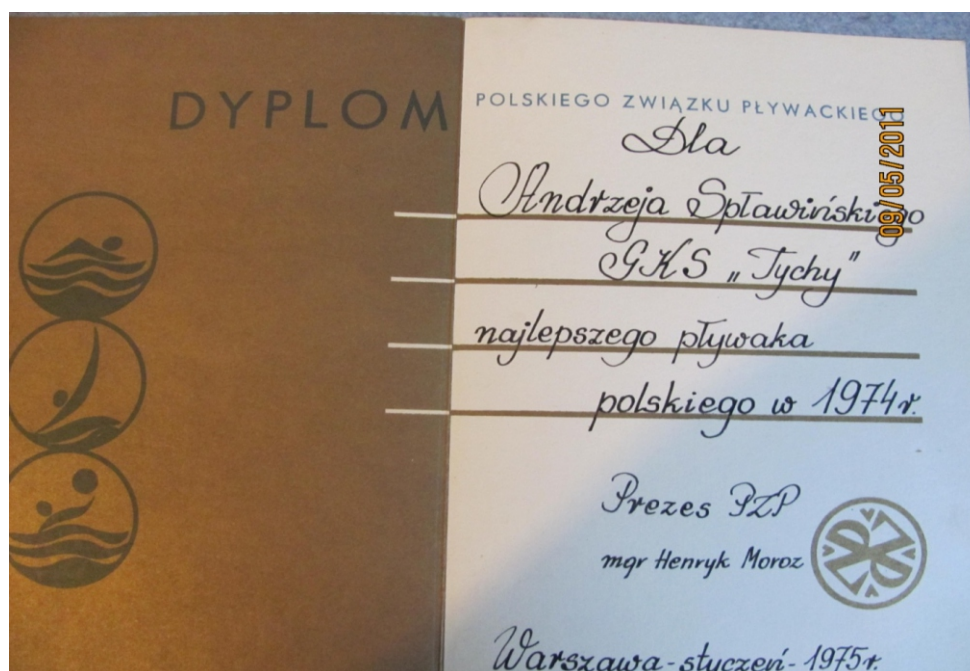 DYPLOM POLSKIEGO ZWIĄZKU PŁYWACKIEGO
Dla
Andrzeja Spławińskiego
GKS „Tychy”
najlepszego pływaka
polskiego w 1974r.
Prezes PZP
mgr Henryk Moroz
PZP
Warszawa-styczeń-1975r.
09/05/2011